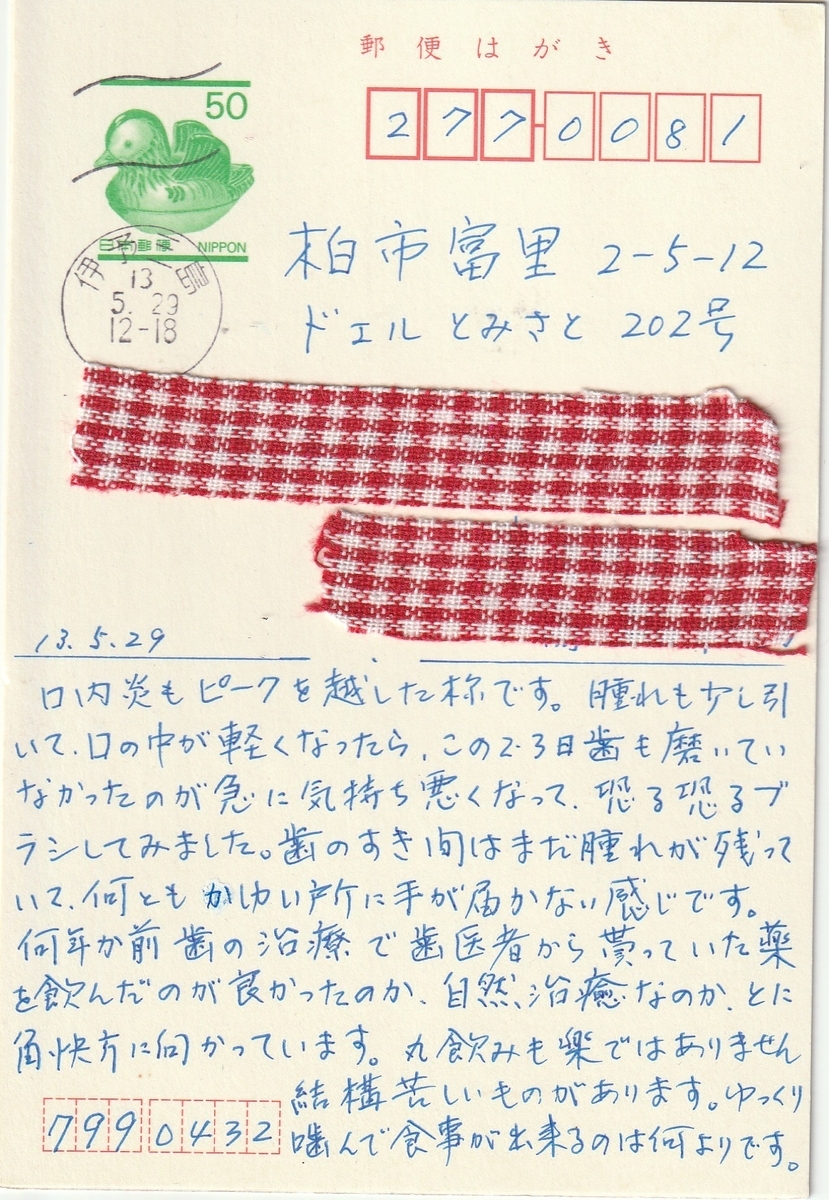 郵便はがき
50
277-0081
日本郵便 NIPPON
伊予三島
13
5.29
12-18
柏市富里 2-5-12
ドエル とみさと 202号
13.5.29
口内炎もピークを越した様です。腫れも少し引
いて、口の中が軽くなったら、この2.3日歯も磨いてい
なかったのが急に気持ち悪くなって、恐る恐るブ
ラシしてみました。歯のすき間はまだ腫れが残って
いて、何ともかゆい所に手が届かない感じです。
何年か前歯の治療で歯医者から貰っていた薬
を飲んだのが良かったのか、自然治癒なのか、とに
角快方に向かっています。丸飲みも楽ではありません
結構苦しいものがあります。ゆっくり
噛んで食事が出来るのは何よりです。
7990432